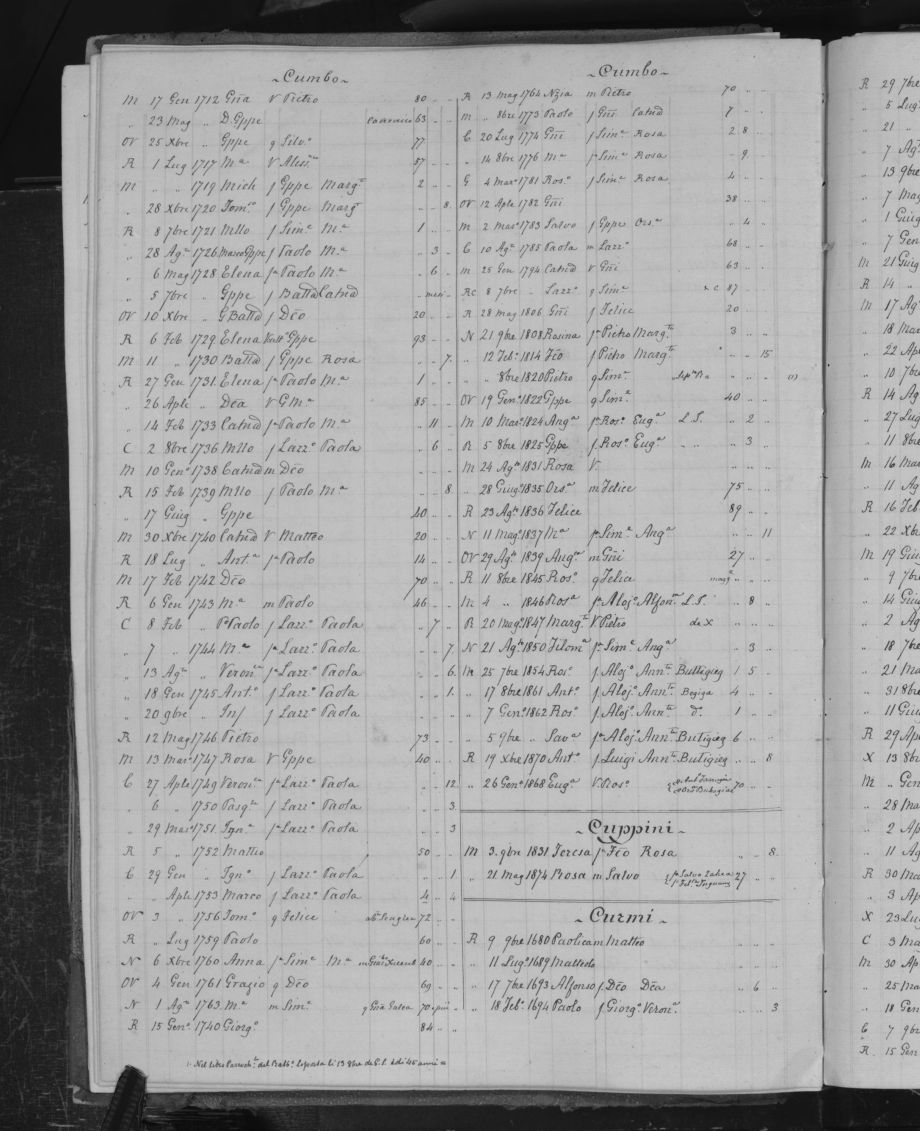 ~Cumbo~
M 17 Gen 1712 Gña V Pietro 80 .. ..
„ 23 Mag „ D. Gppe 63 .. ..
OV 25 Xbre „ Gppe g Silv.º 77
R 1 Lug 1717 M.ª V 57 .. ..
M „ „ 1719 Mich f Gppe Marg.ª 2 .. ..
„ 28 Xbre 1720 Tom.º f Gppe Marg.ª .. .. 8.
R 8 7bre 1721 Mllo f Sim.e M.ª 1 .. ..
„ 28 Ag.º 1726 Marco Gppe f Paolo M.ª .. 3 ..
„ 6 Mag 1728 Elena fª Paolo M.ª .. 6 ..
„ 5 7bre „ Gppe f Battª Catnd
OV 10 Xbre „ G Battª f Dco 20 .. ..
R 6 Feb 1729 Elena Gppe 93 .. ..
M 11 „ 1730 Battª f Gppe Rosa .. .. 7.
R 27 Gen 1731 Elena fª Paolo M.ª 1 .. ..
„ 26 Aple „ Dca V G M.ª 85 .. ..
„ 14 Feb 1733 Catnd fª Paolo M.ª .. 11 ..
C 2 8bre 1736 Mllo f Lazz.º Paola .. 6 ..
M 10 Gen.º 1738 Catnd m Dco
R 15 Feb 1739 Mllo f Paolo M.ª .. .. 8.
„ 17 Giug „ Gppe 40 .. ..
M 30 Xbre 1740 Catnd V Matteo 20 .. ..
R 18 Lug „ Ant.ª fª Paolo 14 .. ..
M 17 Feb 1742 Dco 70 .. ..
R 6 Gen 1743 M.ª m Paolo 46 .. ..
C 8 Feb „ Pº Paolo f Lazz.º Paola .. 7 ..
„ 7 „ 1744 M.ª fª Lazz.º Paola .. .. 7.
„ 13 Ag.º „ Veron.ª fª Lazz.º Paola .. .. 6.
„ 18 Gen 1745 Ant.º f Lazz.º Paola .. .. 1.
„ 20 9bre „ Inf f Lazz.º Paola .. .. ..
R 12 Mag 1746 Pietro 73 .. ..
M 13 Mar.º 1747 Rosa V Gppe 40 .. ..
C 27 Aple 1749 Veron.ª fª Lazz.º Paola .. .. 12
„ 6 „ 1750 Pasq.e f Lazz.º Paola .. .. 3
„ 29 Mar.º 1751 Ign.ª fª Lazz.º Paola .. .. 3
R 5 „ 1752 Matteo 50 .. ..
C 29 Gen „ Ign.º f Lazz.º Paola .. .. 1
„ „ Aple 1753 Marco f Lazz.º Paola 4 .. 4
OV 3 „ 1756 Tom.º g Felice 72 .. ..
R „ Lug 1759 Paolo 60 .. ..
N 6 Xbre 1760 Anna fª Sim.e M.ª 40 .. ..
OV 4 Gen 1761 Grazio g Dco 69 .. ..
N 1 Ag.º 1763 M.ª m Sim.e g Gña Galea 70
R 15 Gen.º 1740 Giorg.º 84 .. ..
1. Nel libro Parroch.le del Batt.º
~Cumbo~
R 13 mag 1764 Nzia m Pietro 70 .. ..
m „ 8bre 1773 Paolo f Gñi Catnd 7 .. ..
C 20 Lug 1774 Gñi f Sim.e Rosa 2 8 ..
„ 14 8bre 1776 M.ª fª Sim.e Rosa .. 9
G 4 Mar.º 1781 Ros.º f Sim.e Rosa 4 .. ..
OV 12 Aple 1782 Gñi 38 .. ..
M 2 Mar.º 1783 Salvo f Gppe Ors.ª .. 4 ..
C 10 Ag.º 1785 Paola m Lazz.º 68 .. ..
m 25 Gen 1794 Catnd V Gñi 63 .. ..
RC 8 7bre „ Lazz.º g Sim.e 87
R 28 Mag 1806 Gñi f Felice 20 .. ..
N 21 9bre 1808 Rosina fª Pietro Marg.ta 3 .. ..
„ 12 Feb.º 1814 Fco f Pietro Marg.ta .. .. 15
„ „ 8bre 1820 Pietro g Sim.e .. .. .. (1)
OV 19 Gen.º 1822 Gppe g Sim.e 40 .. ..
M 10 Mar.º 1824 Ang.ª fª Ros.º Eug.ª L. S. .. 2 ..
R 5 8bre 1825 Gppe f Ros.º Eug.ª „ „ .. 3 ..
M 24 Ag.º 1831 Rosa V. .. .. ..
„ 28 Giug.º 1835 Ors.ª m Felice 75 .. ..
R 23 Ag.º 1836 Felice 89 .. ..
N 11 Mag.º 1837 M.ª fª Sim.e Ang.ª .. .. 11
OV 29 Ag.º 1839 Ang.ª m Gñi 27 .. ..
R 11 8bre 1845 Ros.º g Felice .. .. ..
M 4 „ 1846 Ros.ª fª Aloj.º Alfon.ª L. S. .. 8 ..
R 20 Mag.º 1847 Marg.ta V Pietro de X .. .. ..
N 21 Ag.º 1850 Filom.ª fª Sim.e Ang.ª .. 3 ..
M 25 7bre 1854 Ros.º f Aloj.º Ann.ta Buttigieg 1 5 ..
„ 17 8bre 1861 Ant.º f Aloj.º Ann.ta 4 .. ..
„ 7 Gen.º 1862 Ros.º f Aloj.º Ann.ta d.º 1 .. ..
„ 5 9bre „ Sav.ª fª Aloj.º Ann.ta Butigieg 6 .. ..
R 19 Xbre 1870 Ant.º f Luigi Ann.ta Butigieg .. .. 8
„ 26 Gen.º 1868 Eug.ª V. Ros.º 70 .. ..
~Cuppini~
M 3. 9bre 1831 Teresa fª Fco Rosa .. .. 8.
„ 21 Mag 1874 Rosa m Salvo 27 .. ..
~Curmi~
R 9 9bre 1680 Paolica m Matteo .. .. ..
„ 11 Lug.º 1689 .. .. ..
„ 17 7bre 1693 Alfonso f Dco Dca .. 6 ..
„ 18 Feb.º 1694 Paolo f Giorg.º Veron.ª .. .. 3
R 29 7bre
„ 5 Lug
„ 21 „
„ 7 Ag.º
„ 13 9bre
„ 7 Mag
„ 1 Giug
„ 7 Gen
M 21 Giug
R 14 „
M 17 Ag.º
„ 18 Mar
„ 22 Ap
„ 10 7b
R 14 Ag
„ 27 Lug
„ 11 8b
M 16 Mar
„ 11 Ag
R 16 Feb
„ 22 Xb
M 19 Giu
„ 9 7b
„ 14 Giu
„ 2 Ag
„ 18 7b
„ 21 Ma
„ 31 8b
„ 11 Giu
R 29 Ap
X 13 8b
M „ Gen
„ 28 Ma
„ 2 Ap
„ 11 Ag
R 30 Ma
„ 3 Ap
X 23 Lug
C 3 Ma
M 30 Ap
„ 25 Ma
„ 18 Gen
C 7 9b
R 15 Gen